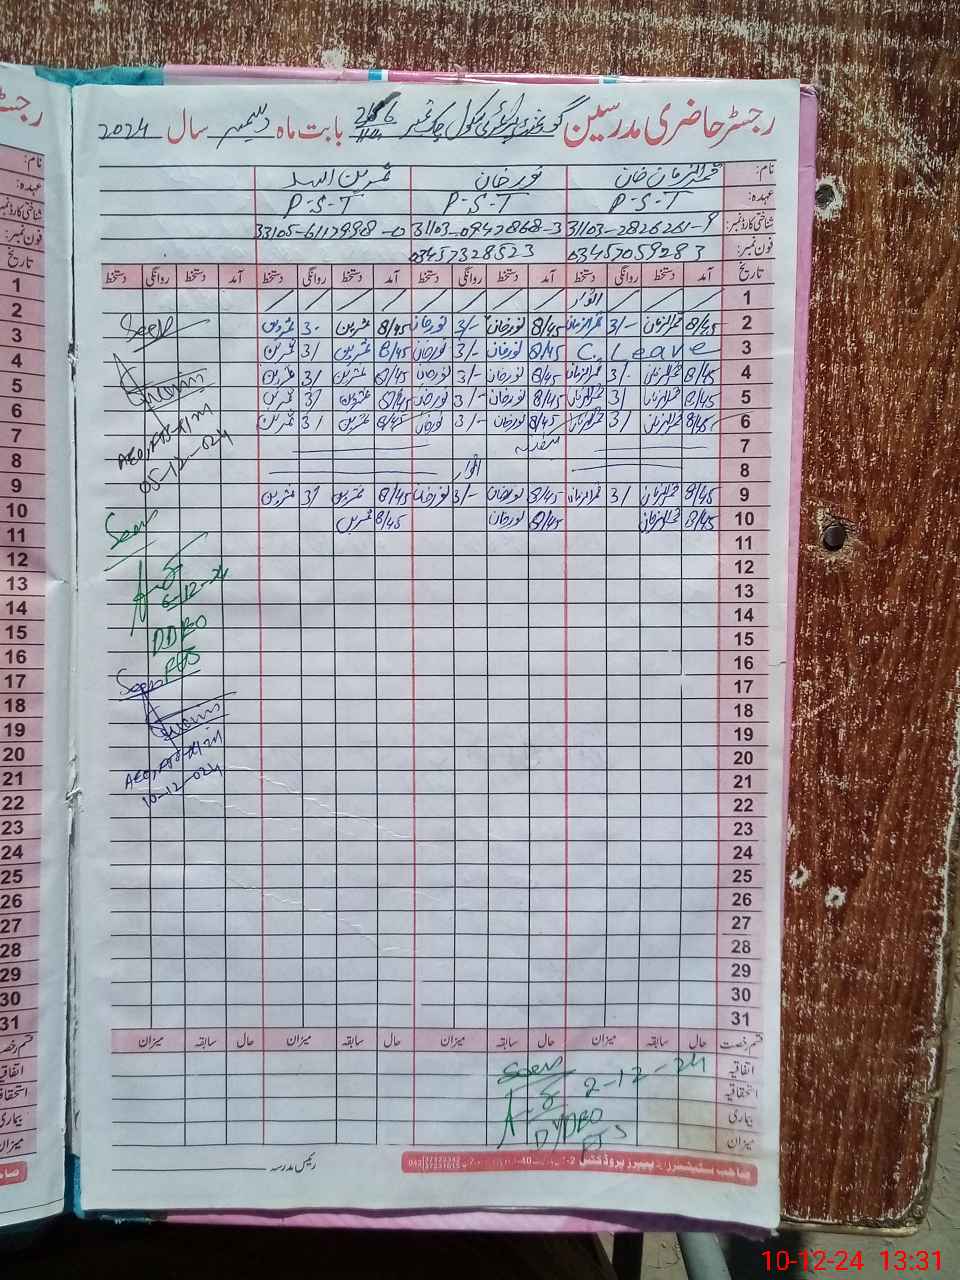 رجسٹر حاضری مدرسین گورنمنٹ پرائمری سکول چک نمبر بابت ماہ دسمبر سال 2024
نام: قمرالزمان خان نور خان
عہدہ: P-S-T P-S-T P-S-T
شناختی کارڈ نمبر 31103-2826261-9 31103-0942868-3
فون نمبر: 03457059283 03457328523
تاریخ آمد دستخط روانگی دستخط آمد دستخط روانگی دستخط آمد دستخط روانگی دستخط آمد دستخط روانگی دستخط
1 اتوار
2 8/45 قمرالزمان 3/- قمرالزمان 8/45 نور خان 3/- نور خان 8/45 ثمرین 3- ثمرین
3 C. Leave 8/45 نور خان 3/- نور خان 8/45 ثمرین 3/ ثمرین
4 8/45 قمرالزمان 3/- قمرالزمان 8/45 نور خان 3/- نور خان 8/45 ثمرین 3/ ثمرین
5 8/45 قمرالزمان 3/ قمرالزمان 8/45 نور خان 3/- نور خان 8/45 ثمرین 3/ ثمرین
6 8/45 قمرالزمان 3/ قمرالزمان 8/45 نور خان 3/- نور خان 8/45 ثمرین 3/ ثمرین
7
8 اتوار
9 8/45 قمرالزمان 3/ قمرالزمان 8/45 نور خان 3/- نور خان 8/45 ثمرین 3/ ثمرین
10 8/45 قمرالزمان 8/45 نور خان 8/45 ثمرین
11
12
13
14
15
16
17
18
19
20
21
22
23
24
25
26
27
28
29
30
31
Seen
05-12-024
Seen
6-12-24
DDEO
FTS
Seen
10-12-024
قسم رخصت حال سابقہ میزان حال سابقہ میزان حال سابقہ میزان حال سابقہ میزان
اتفاقیہ
استحقاقیہ
بیماری
میزان
Seen
2-12-24
DDEO
FTS
رئیس مدرسہ
10-12-24 13:31